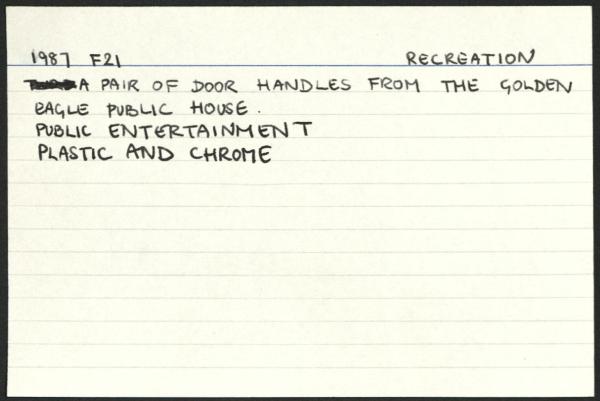 1987 F21 RECREATION
A PAIR OF DOOR HANDLES FROM THE GOLDEN
EAGLE PUBLIC HOUSE.
PUBLIC ENTERTAINMENT
PLASTIC AND CHROME